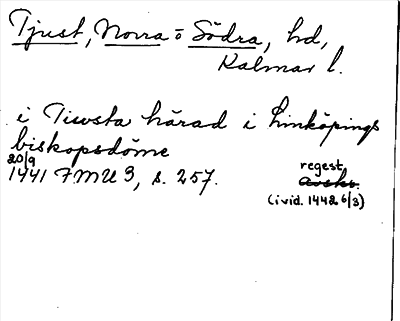 Tjust, Norra o Södra, hd,
Kalmar l.
i Tiwsta härad i Linköpings
biskopsdöme
20/9
1441 FMU 3, s. 257. regest,
avskr.
(ivid. 1442 6/3)